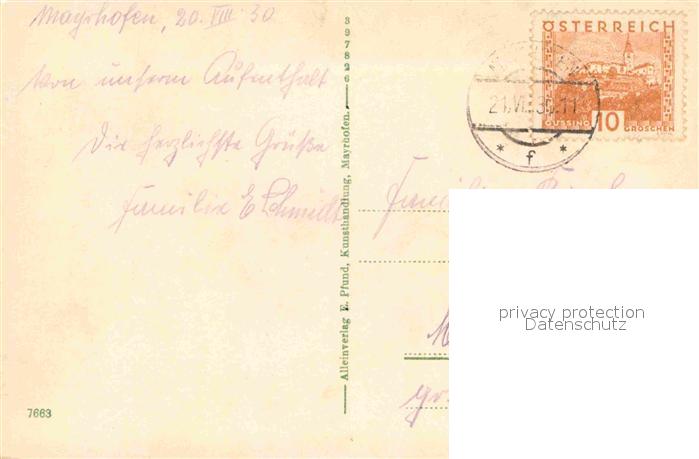 Mayrhofen, 20. VIII. 30
Von unserm Aufenthalt
Die herzlichste Grüße
Familie E Schmidt
397826
Alleinverlag E. Pfund, Kunsthandlung, Mayrhofen.
7663
ÖSTERREICH
GÜSSING 10 GROSCHEN
21.VIII.30.11
* f *
Familie
privacy protection
Datenschutz